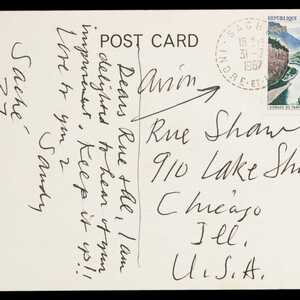 POST CARD
Dears Rue & Al, I am
delighted to hear of your
improvement. Keep it up!!
Love to you 2
Sandy
Saché
avion
Rue Shaw
910 Lake Sh
Chicago
Ill.
U.S.A.
SACH
1967
INDRE-ET
REPUBLIQUE
GORGES DU TARN